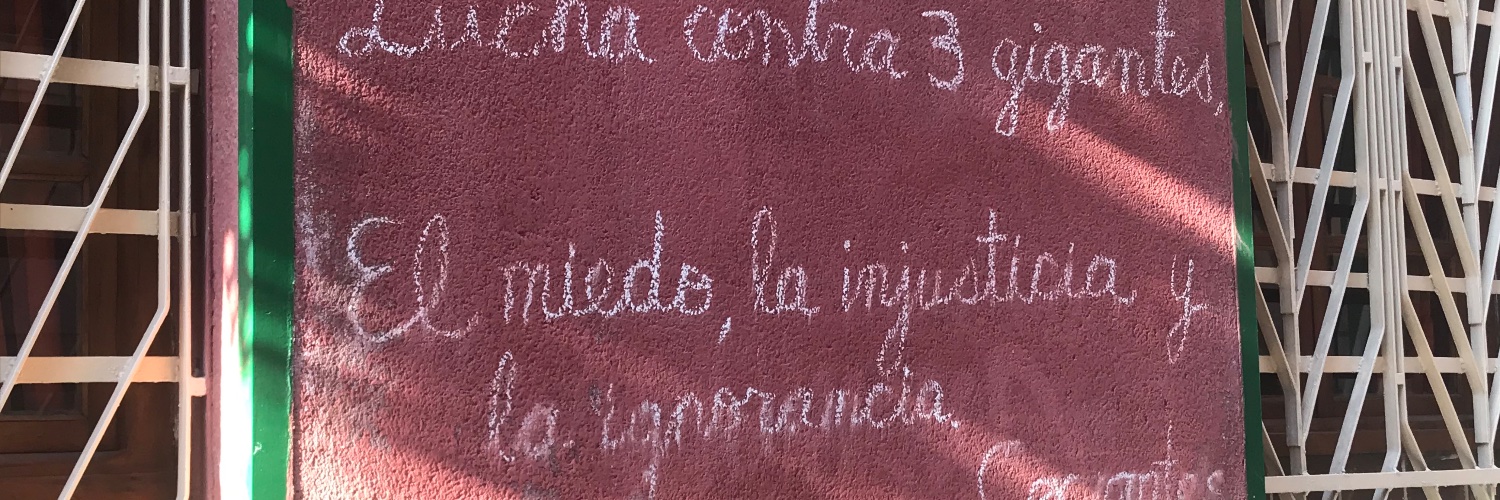 Lucha contra 3 gigantes,
El miedo, la injusticia y
la ignorancia.
Cervantes